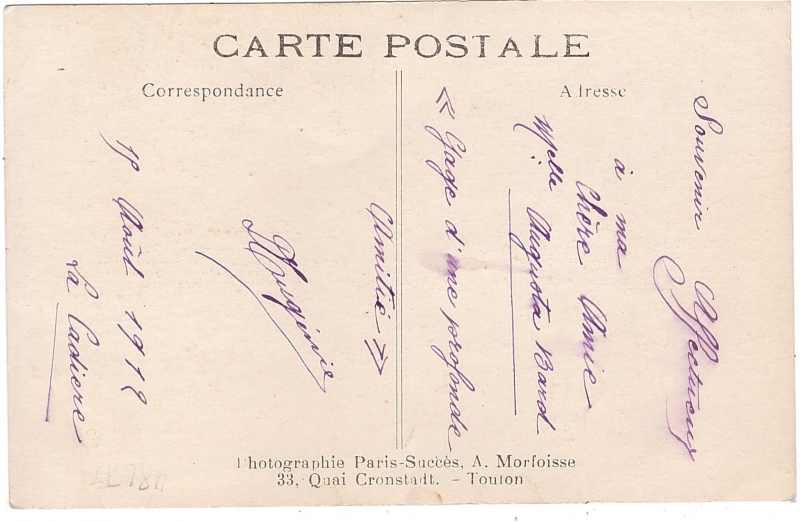 CARTE POSTALE
Correspondance
Adresse
Souvenir Affectueux
à ma
Chère Amie
Melle Augusta Bard
« Gage d'une profonde
Amitié »
Août 1912
La Cadière
Photographie Paris-Succès, A. Morfoisse
33, Quai Cronstadt. - Toulon